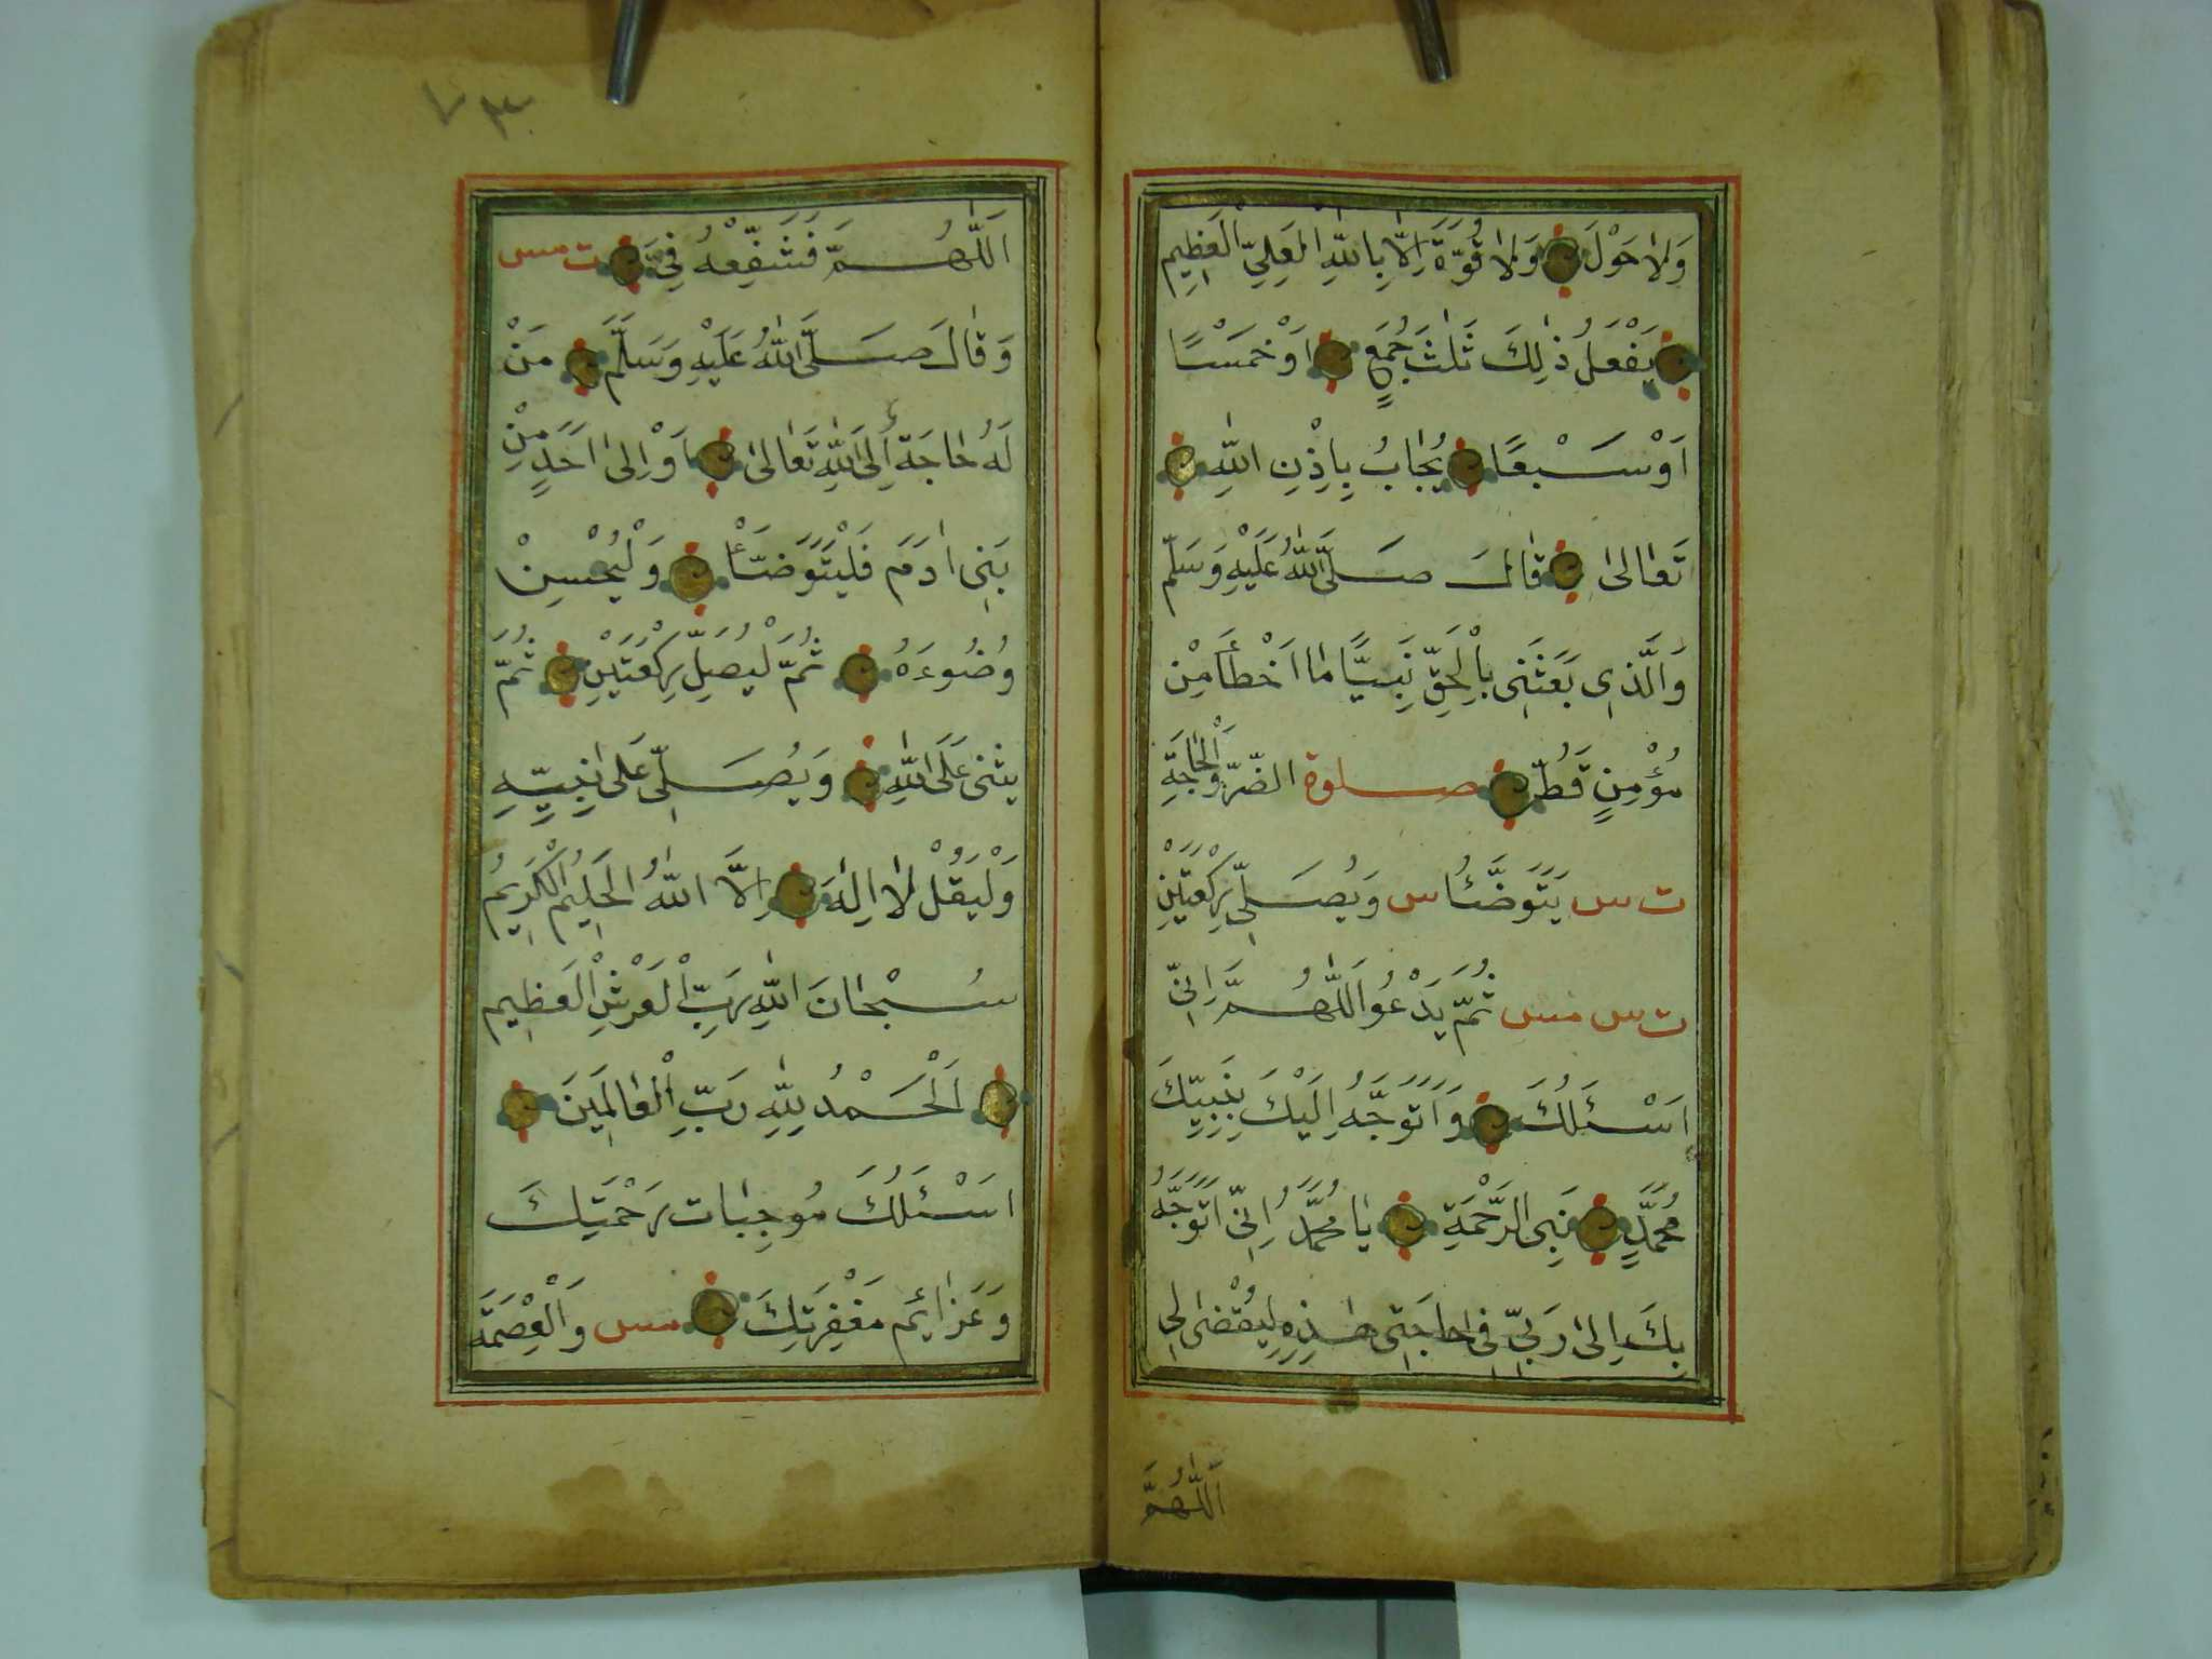 وَلَا حَوْلَ وَلَا قُوَّةَ اِلَّا بِاللّٰهِ الْعَلِيِّ الْعَظِيمِ
يَفْعَلُ ذٰلِكَ ثَلٰثَ جُمَعٍ اَوْ خَمْسًا
اَوْ سَبْعًا يُجَابُ بِاِذْنِ اللّٰهِ
تَعَالٰى قَالَ صَلَّى اللّٰهُ عَلَيْهِ وَسَلَّمَ
وَالَّذِى بَعَثَنِى بِالْحَقِّ نَبِيًّا مَا اَخْطَأَ مِنْ
مُؤْمِنٍ قَطُّ صلوة الضّرّ وَالْحَاجَةِ
ت س يَتَوَضَّئُا س وَيُصَلِّى رَكْعَتَيْنِ
ت س مس ثُمَّ يَدْعُو اَللّٰهُمَّ اِنِّى
اَسْئَلُكَ وَاَتَوَجَّهُ اِلَيْكَ بِنَبِيِّكَ
مُحَمَّدٍ نَبِىِّ الرَّحْمَةِ يَا مُحَمَّدُ اِنِّى اَتَوَجَّهُ
بِكَ اِلٰى رَبِّى فِى حَاجَتِى هٰذِهِ لِيُقْضٰى لِى
اَللّٰهُمَّ
٧٣
اَللّٰهُمَّ فَشَفِّعْهُ فِىَّ ت مس
وَقَالَ صَلَّى اللّٰهُ عَلَيْهِ وَسَلَّمَ مَنْ
لَهُ حَاجَةٌ اِلَى اللّٰهِ تَعَالٰى اَوْ اِلٰى اَحَدٍ مِنْ
بَنِى اٰدَمَ فَلْيَتَوَضَّأْ وَلْيُحْسِنْ
وُضُوءَهُ ثُمَّ لْيُصَلِّ رَكْعَتَيْنِ ثُمَّ
يثنى عَلَى اللّٰهِ وَيُصَلِّى عَلٰى نَبِيِّهِ
وَلْيَقُلْ لَا اِلٰهَ اِلَّا اللّٰهُ الْحَلِيمُ الْكَرِيمُ
سُبْحَانَ اللّٰهِ رَبِّ الْعَرْشِ الْعَظِيمِ
اَلْحَمْدُ لِلّٰهِ رَبِّ الْعَالَمِينَ
اَسْئَلُكَ مُوجِبَات رَحْمَتِكَ
وَعَزَائِمَ مَغْفِرَتِكَ مس وَالْعِصْمَةَ